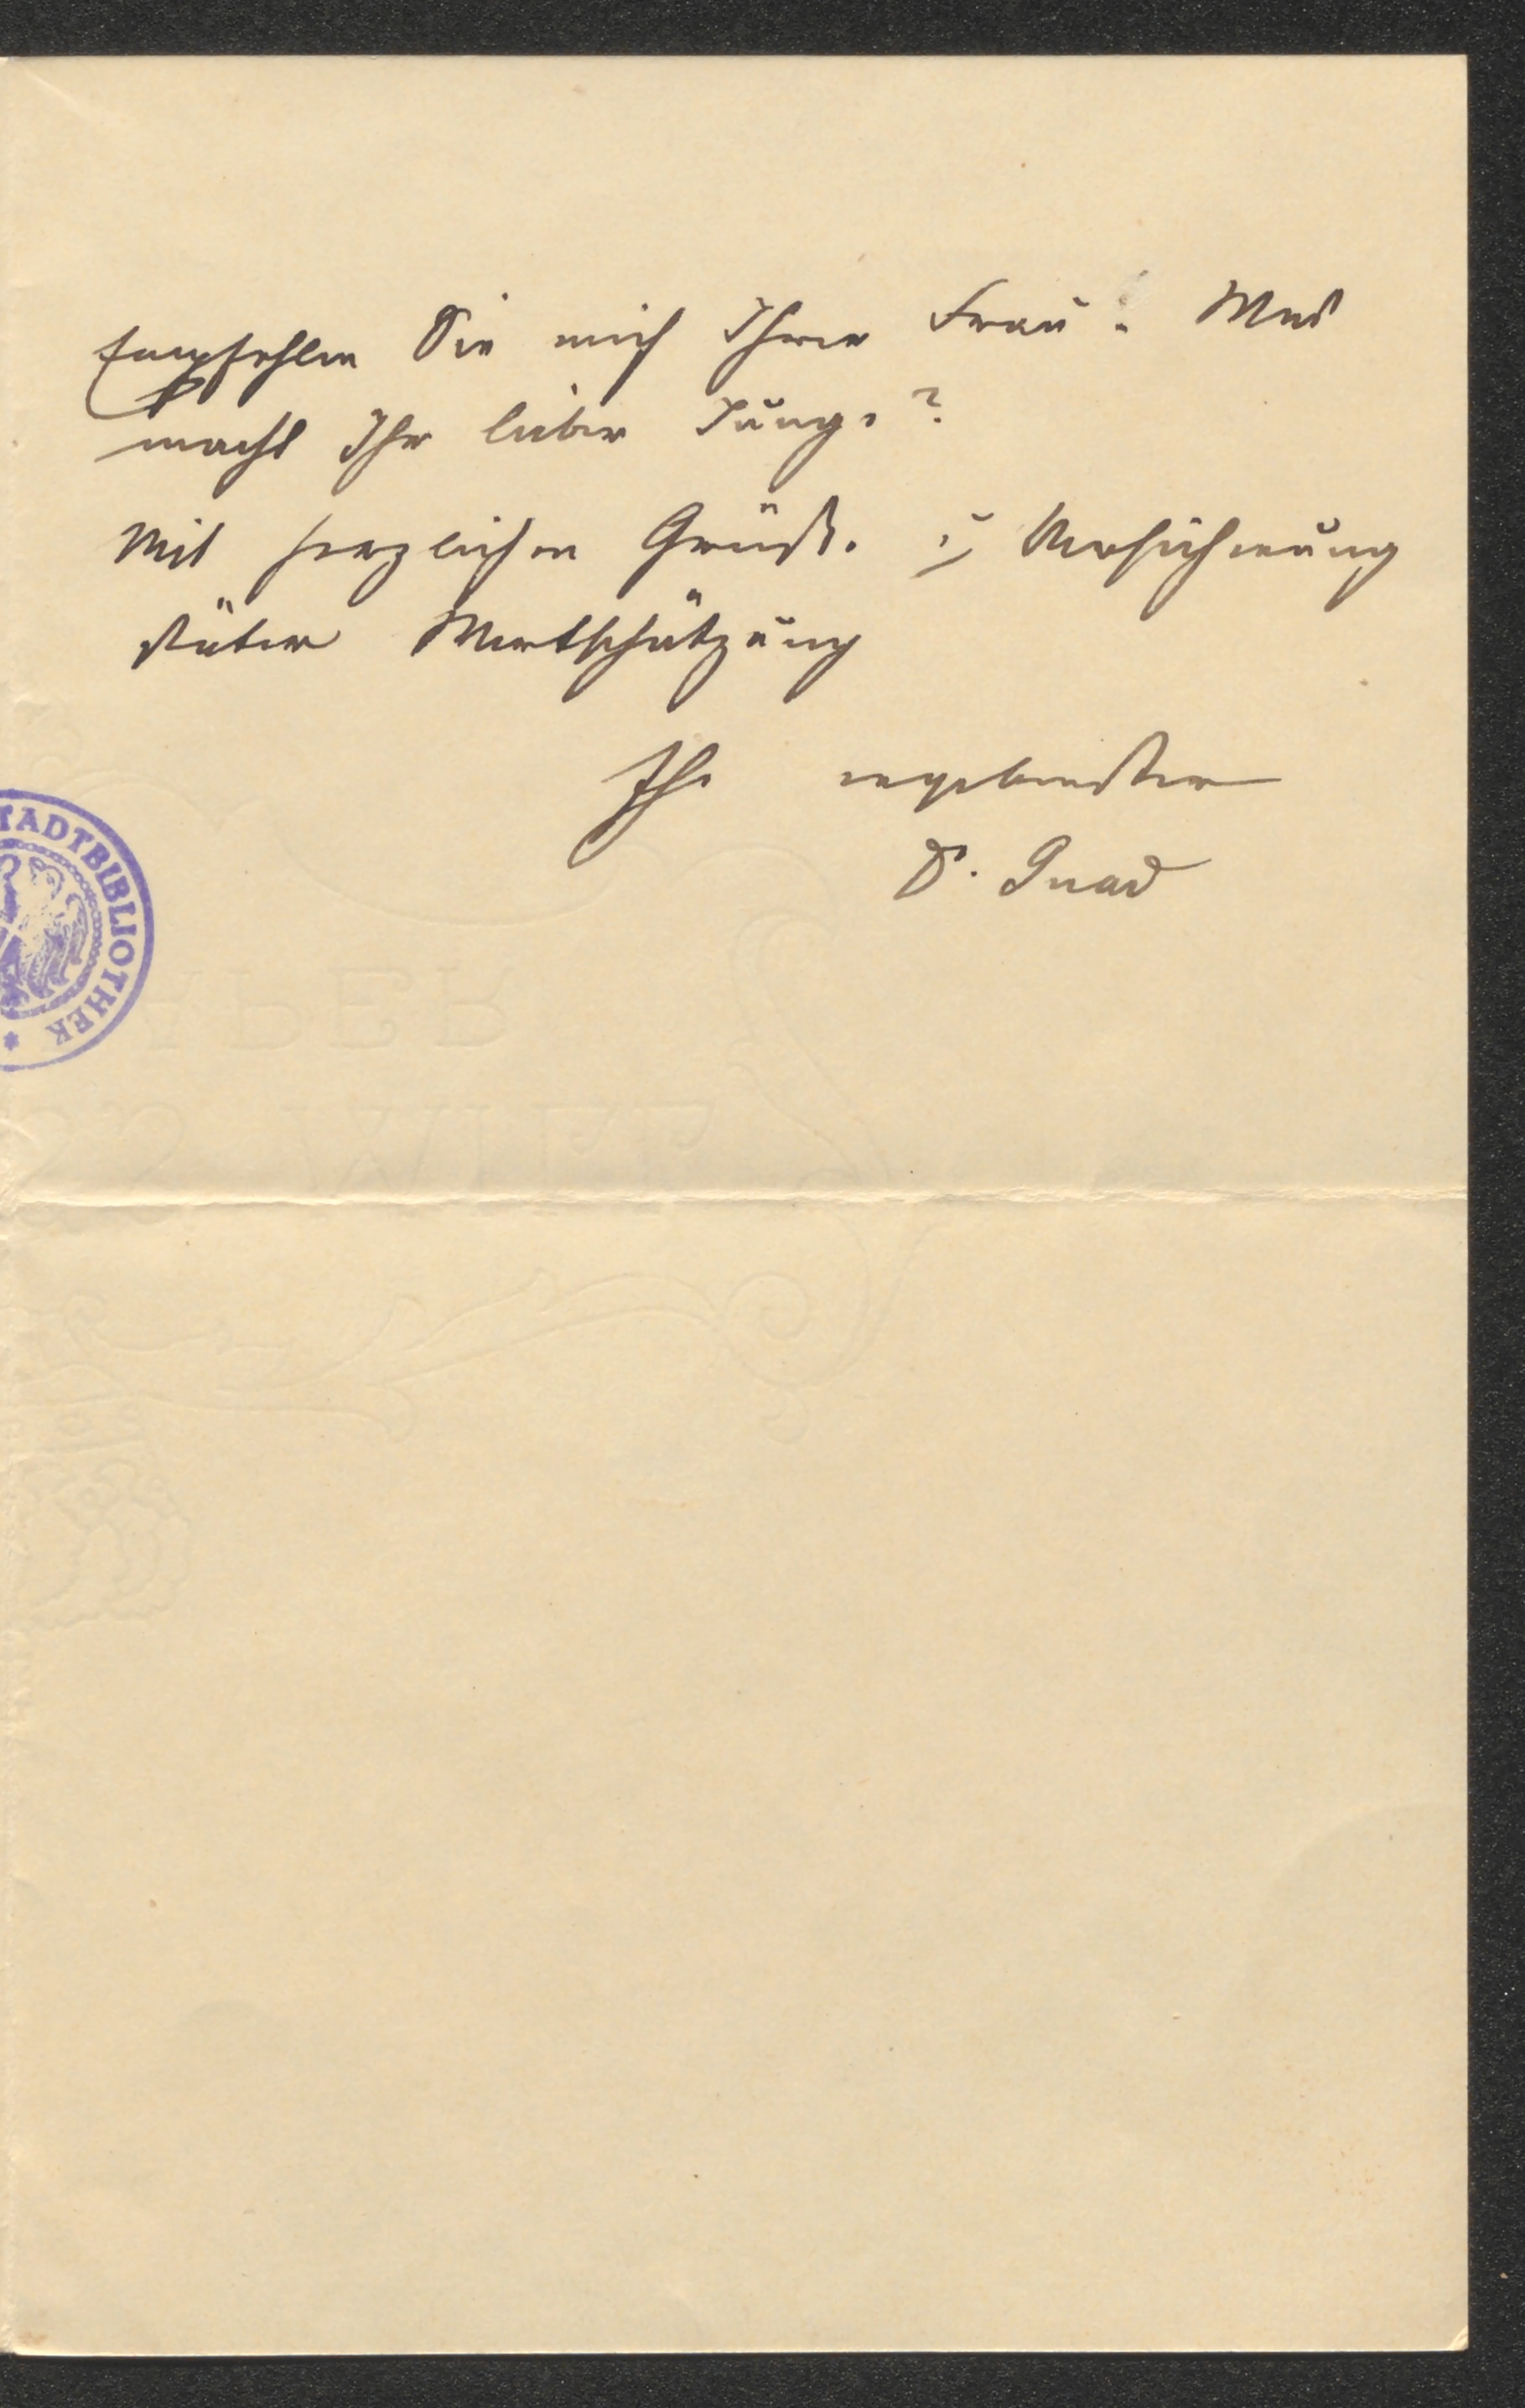 Empfehlen Sie mich Ihrer Frau! Was
macht Ihr lieber Junge?
Mit herzlichem Gruße u Versicherung
steter Wertschätzung
Ihr ergebenster
Dr. Gnad
STADTBIBLIOTHEK *